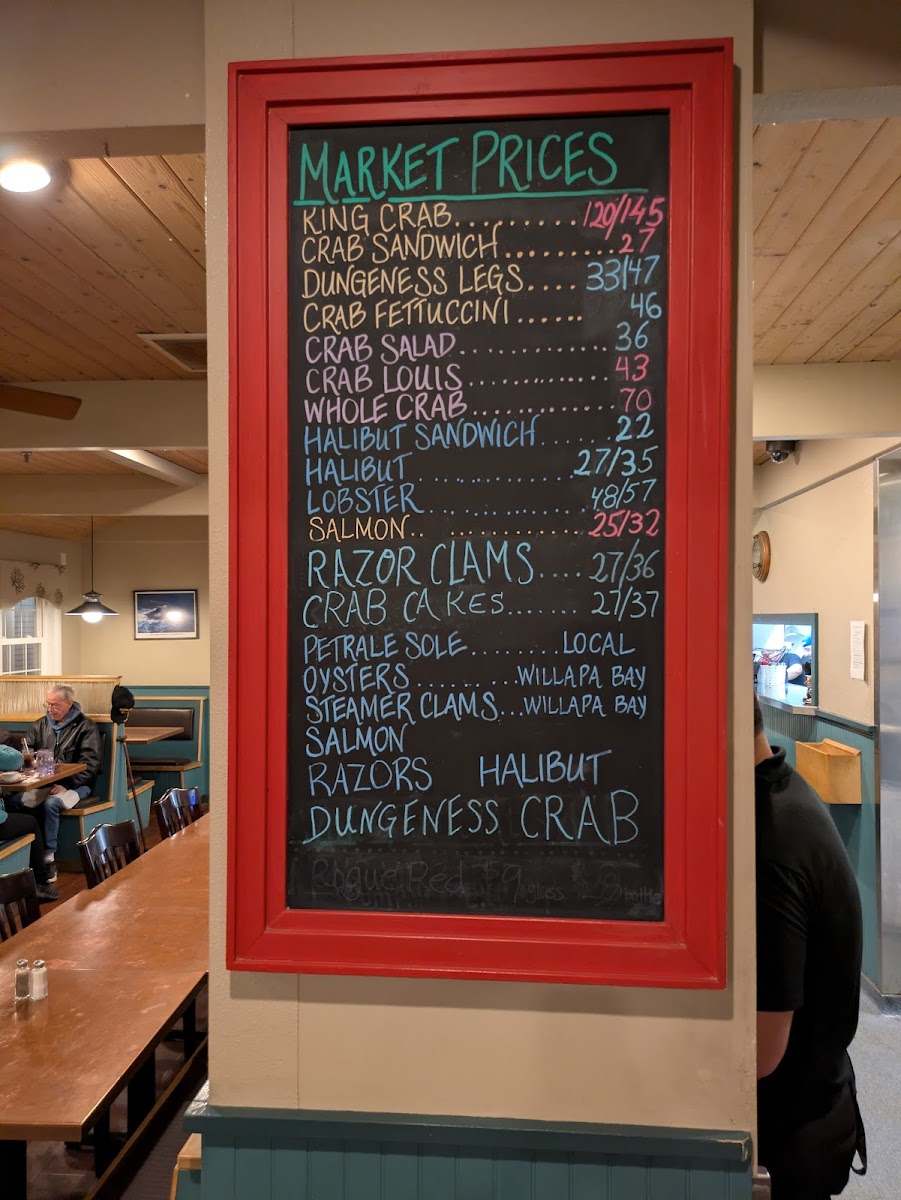 MARKET PRICES
KING CRAB.......... 120/145
CRAB SANDWICH......... 27
DUNGENESS LEGS..... 33/47
CRAB FETTUCCINI...... 46
CRAB SALAD............. 36
CRAB LOUIS............. 43
WHOLE CRAB............. 70
HALIBUT SANDWICH....... 22
HALIBUT............ 27/35
LOBSTER............ 48/57
SALMON............ 25/32
RAZOR CLAMS.... 27/36
CRAB CAKES....... 27/37
PETRALE SOLE......... LOCAL
OYSTERS.........WILLAPA BAY
STEAMER CLAMS...WILLAPA BAY
SALMON
RAZORS HALIBUT
DUNGENESS CRAB
Rogue Red $9 glass bottle